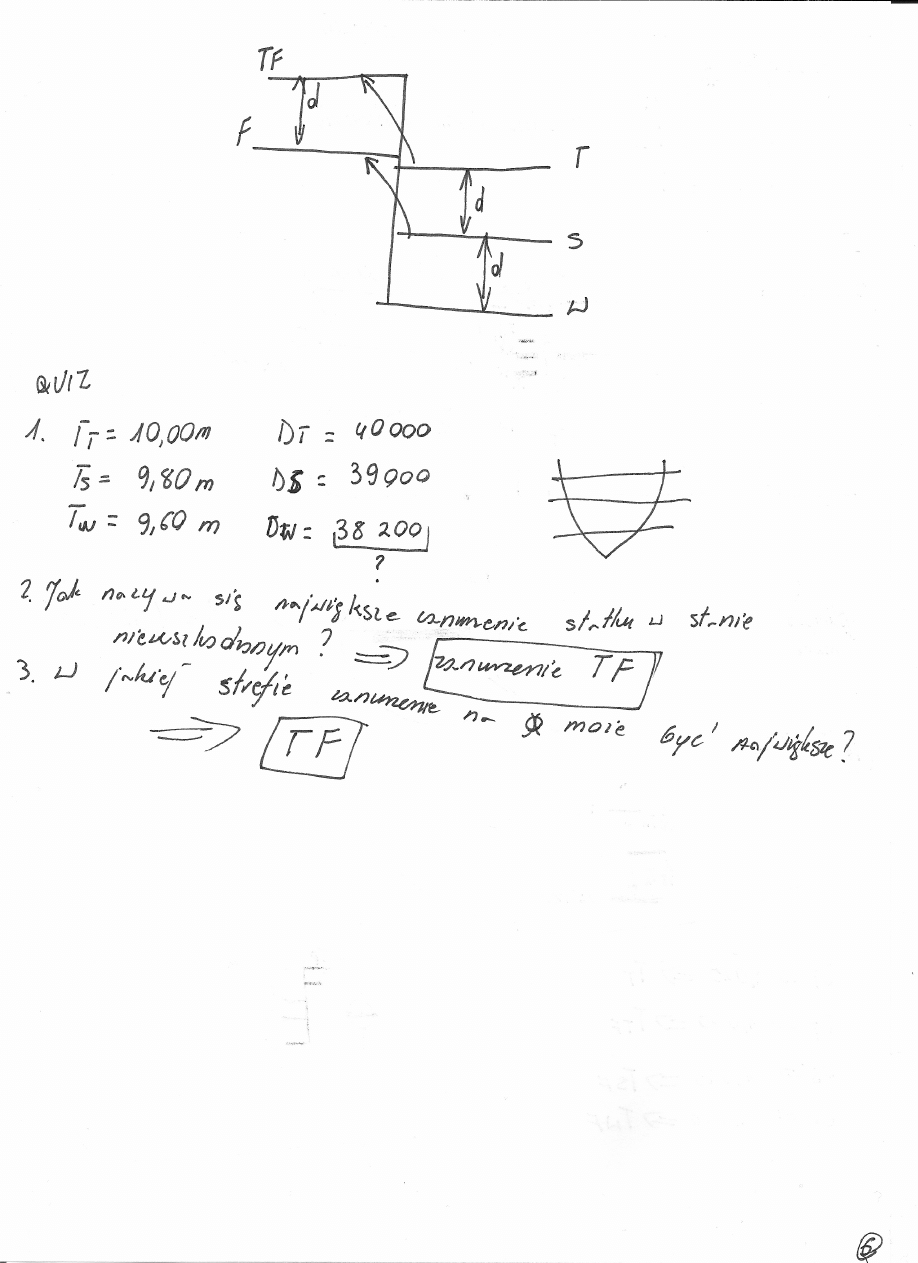 TF
d
F
T
d
S
d
W
QUIZ
1. TT = 10,00m DT = 40000
TS = 9,80 m DS = 39000
TW = 9,60 m DW = 38 200
?
2. Jak nazywa się największe zanurzenie statku w stanie
nieuszkodzonym? ⇒ zanurzenie TF
3. W jakiej strefie zanurzenie na moie być największe?
⇒ TF
6